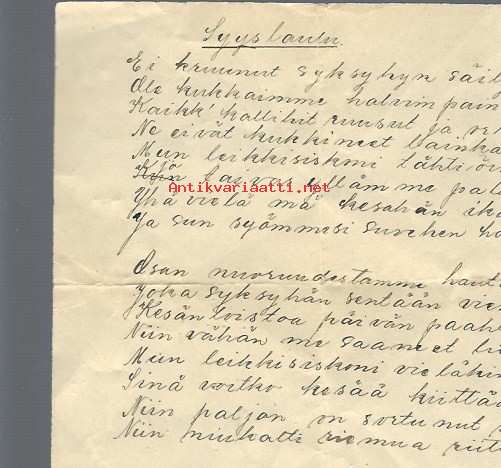 Syyslaulu.
Ei kruunut syksykyn säil
Ole kukkaimme halvimpain
Kaikk' kalliit ruusut ja re
Ne eivät kukkineet lainka
Mun leikkisiskoni lähti
Antikvariaatti.net
Yhä vielä mä kesähän ik
Ja sun syömmesi suvehen ha
Osan nuoruudestamme haut
Joka syksyhän sentään vie
Kesän loistoa päivän paah
Niin vähän me saaneet li
Mun leikkisiskoni vieläki
Sinä voitko kesää kiittää
Niin paljon on sortunut
Niin niukalti riemua riit